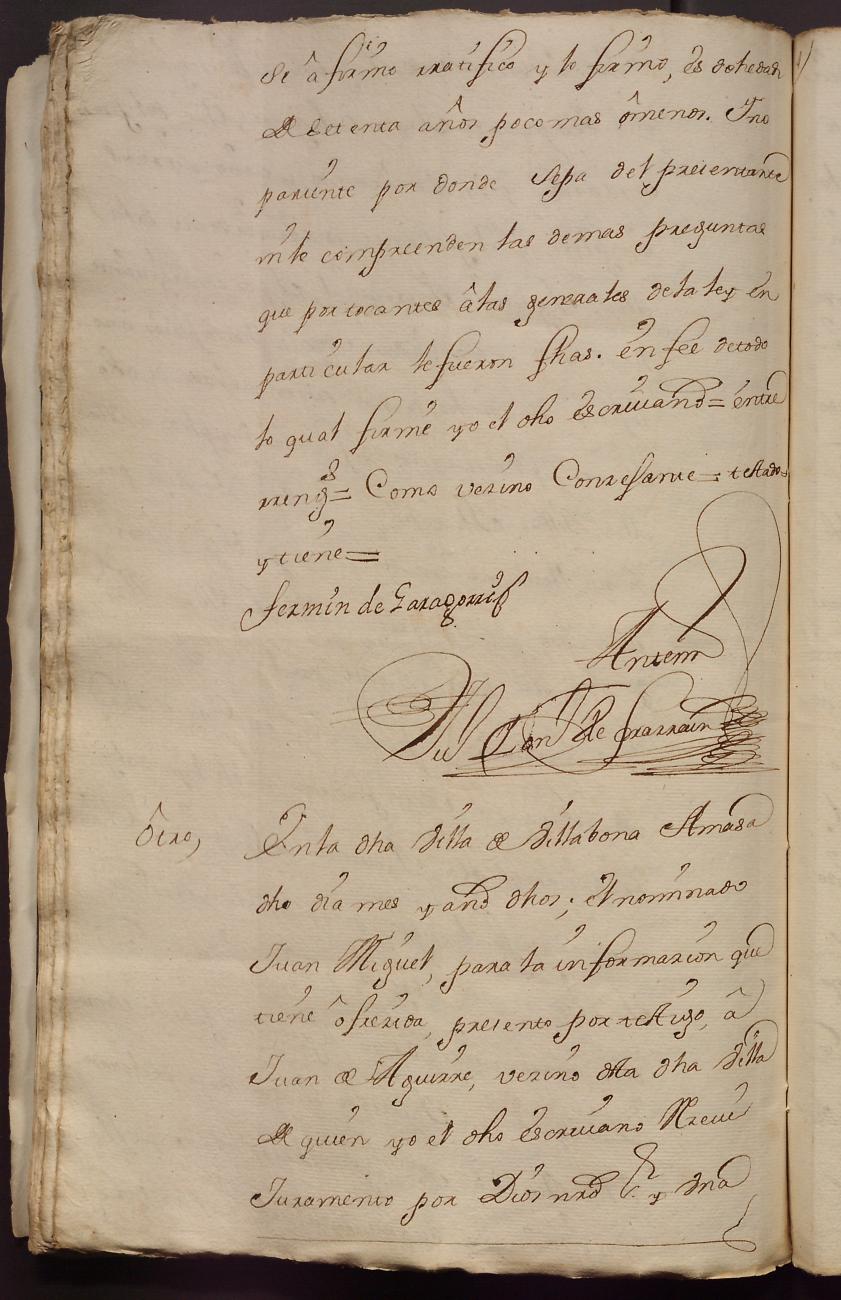 se âfirmo rratifico y lo firmo, es de hedad
de setenta años poco mas ômenos. Ino
pariente por donde sepa del presentante
nile comprenden las demas preguntas
que por tocantes âlas generales dela ley en
particular le fueron fhas. en fee detodo
lo qual firmé yo el dho escriuano = entre
rreng.s = Como vezino Confesante = testado =
y tiene =
Fermin de Garagorri
Antemi
de Irarrain
Otro,
Enla dha Villa de Villabona Amasa
dho dia mes y año dhos; el nominado
Juan Miguel, para la informazion que
tiene ôfrezida, presento por testigo, â
Juan de Aguirre, vezino dela dha Villa
de quien yo el dho escriuano Rreciui
Juramento por Dios nro S.r y Vna